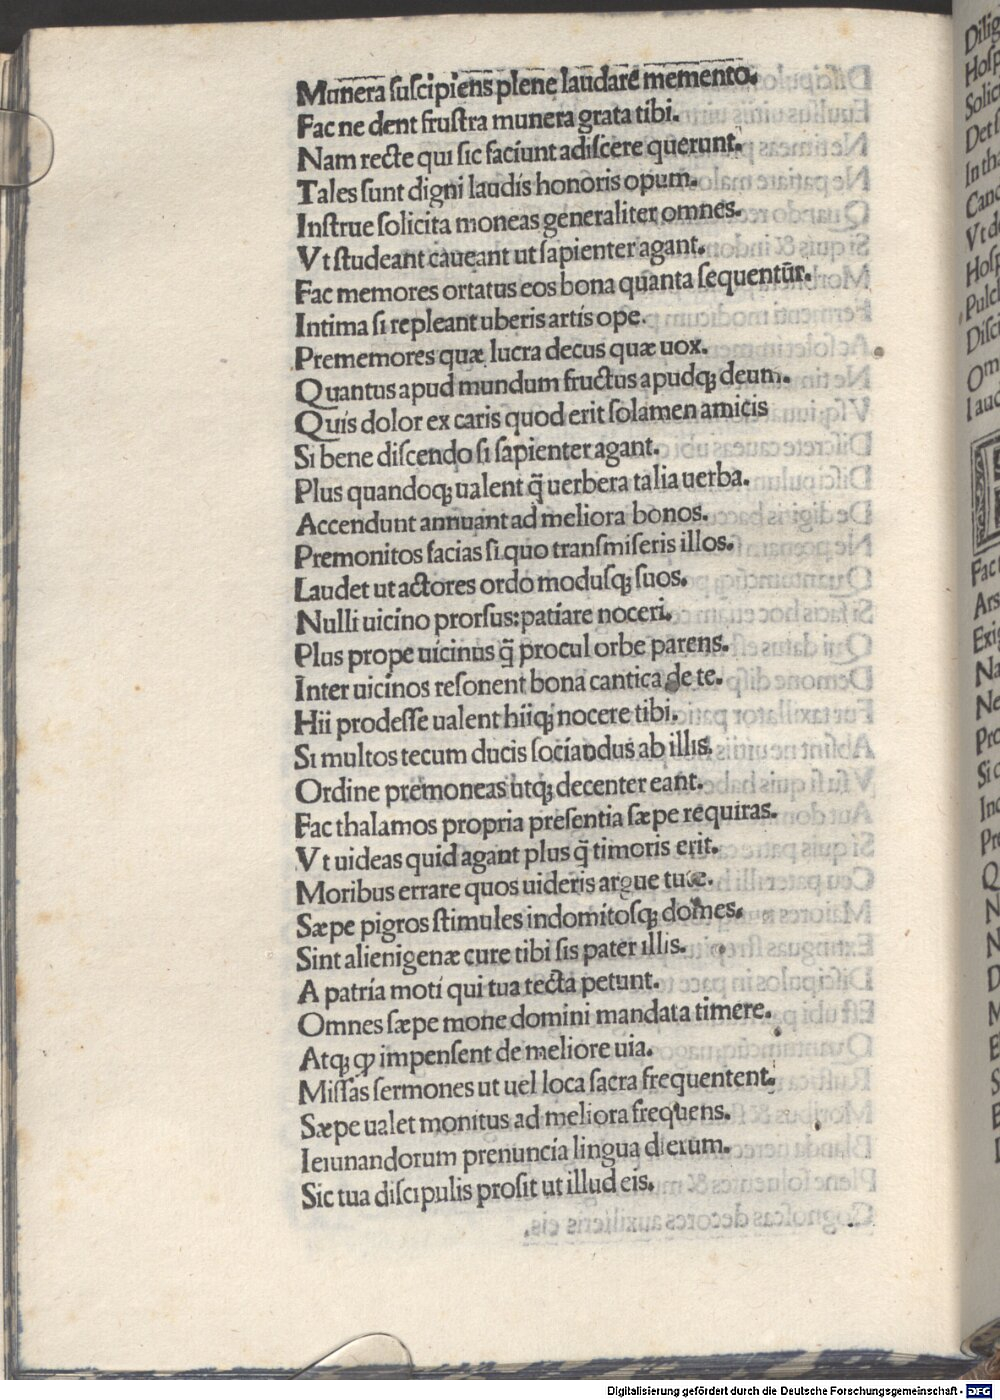 Munera suscipiens plene laudare memento.
Fac ne dent frustra munera grata tibi.
Nam recte qui sic faciunt adiscere querunt.
Tales sunt digni laudis honoris opum.
Instrue solicita moneas generaliter omnes.
Vt studeant caueant ut sapienter agant.
Fac memores ortatus eos bona quanta sequentur̄.
Intima si repleant uberis artis ope.
Prememores quæ lucra decus quæ uox.
Quantus apud mundum fructus apudqꝫ deum.
Quis dolor ex caris quod erit solamen amicis
Si bene discendo si sapienter agant.
Plus quandoqꝫ ualent q̄ uerbera talia uerba.
Accendunt annuant ad meliora bonos.
Premonitos facias si quo transmiseris illos.
Laudet ut actores ordo modusqꝫ suos.
Nulli uicino prorsus: patiare noceri.
Plus prope uicinus q̄ procul orbe parens.
Inter uicinos resonent bona cantica de te.
Hii prodesse ualent hiiqꝫ nocere tibi.
Si multos tecum ducis sociandus ab illis.
Ordine premoneas utqꝫ decenter eant.
Fac thalamos propria presentia sæpe requiras.
Vt uideas quid agant plus q̄ timoris erit.
Moribus errare quos uideris argue tute.
Sæpe pigros stimules indomitosqꝫ domes.
Sint alienigenæ cure tibi sis pater illis.
A patria moti qui tua tecta petunt.
Omnes sæpe mone domini mandata timere.
Atqꝫ ꝙ impensent de meliore uia.
Missas sermones ut uel loca sacra frequentent.
Sæpe ualet monitus ad meliora frequens.
Ieiunandorum prenuncia lingua dierum.
Sic tua discipulis prosit ut illud eis.
Digitalisierung gefördert durch die Deutsche Forschungsgemeinschaft - DFG